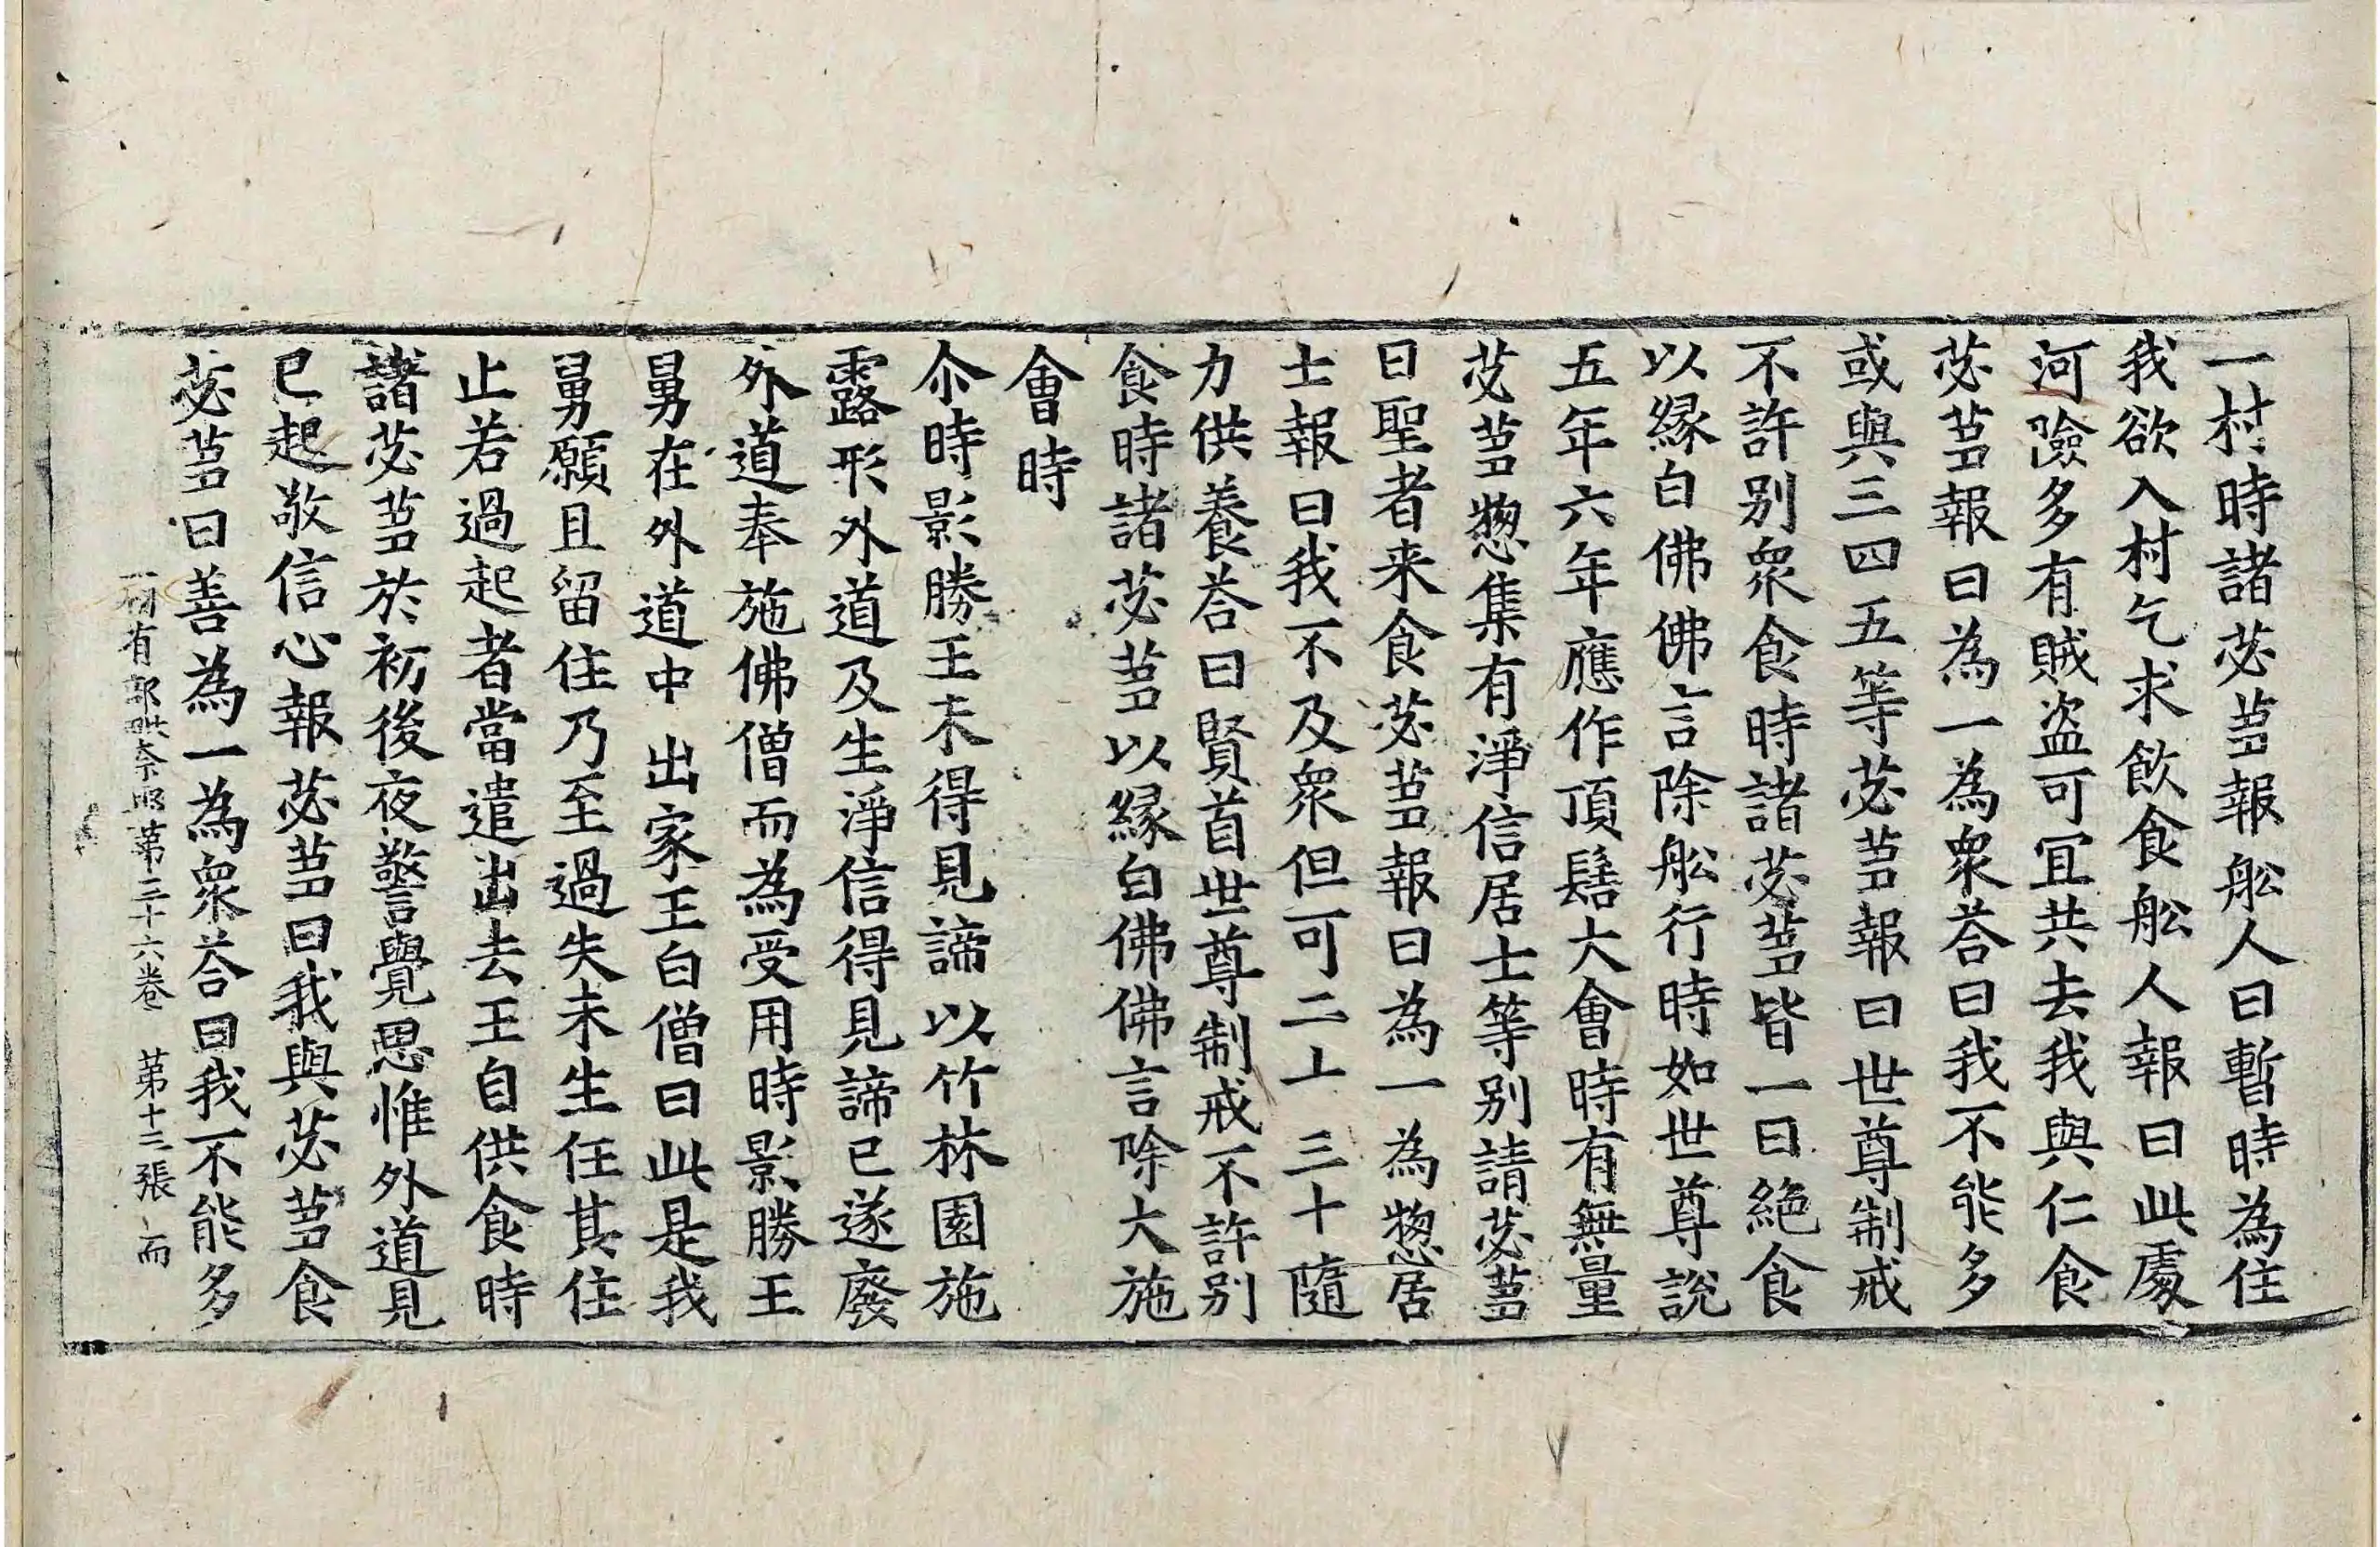 一村時諸苾蒭報舩人曰暫時為住
我欲入村乞求飲食舩人報曰此處
河險多有賊盗可冝共去我與仁食
苾蒭報曰為一為衆荅曰我不能多
或與三四五等苾蒭報曰世尊制戒
不許别衆食時諸苾蒭皆一日絶食
以縁白佛佛言除舩行時如世尊說
五年六年應作頂髻大會時有無量
苾蒭惣集有淨信居士等别請苾蒭
曰聖者来食苾蒭報曰為一為惣居
士報曰我不及衆但可二十三十隨
力供養荅曰賢首世尊制戒不許别
食時諸苾蒭以縁白佛佛言除大施
會時
尒時影勝王未得見諦以竹林園施
露形外道及生淨信得見諦已遂廢
外道奉施佛僧而為受用時影勝王
舅在外道中出家王白僧曰此是我
舅願且留住乃至過失未生任其住
止若過起者當遣出去王自供食時
諸苾蒭於初後夜警覺思惟外道見
已起敬信心報苾蒭曰我與苾蒭食
苾蒭曰善為一為衆荅曰我不能多
一切有部毗奈耶第三十六卷 第十三張 而